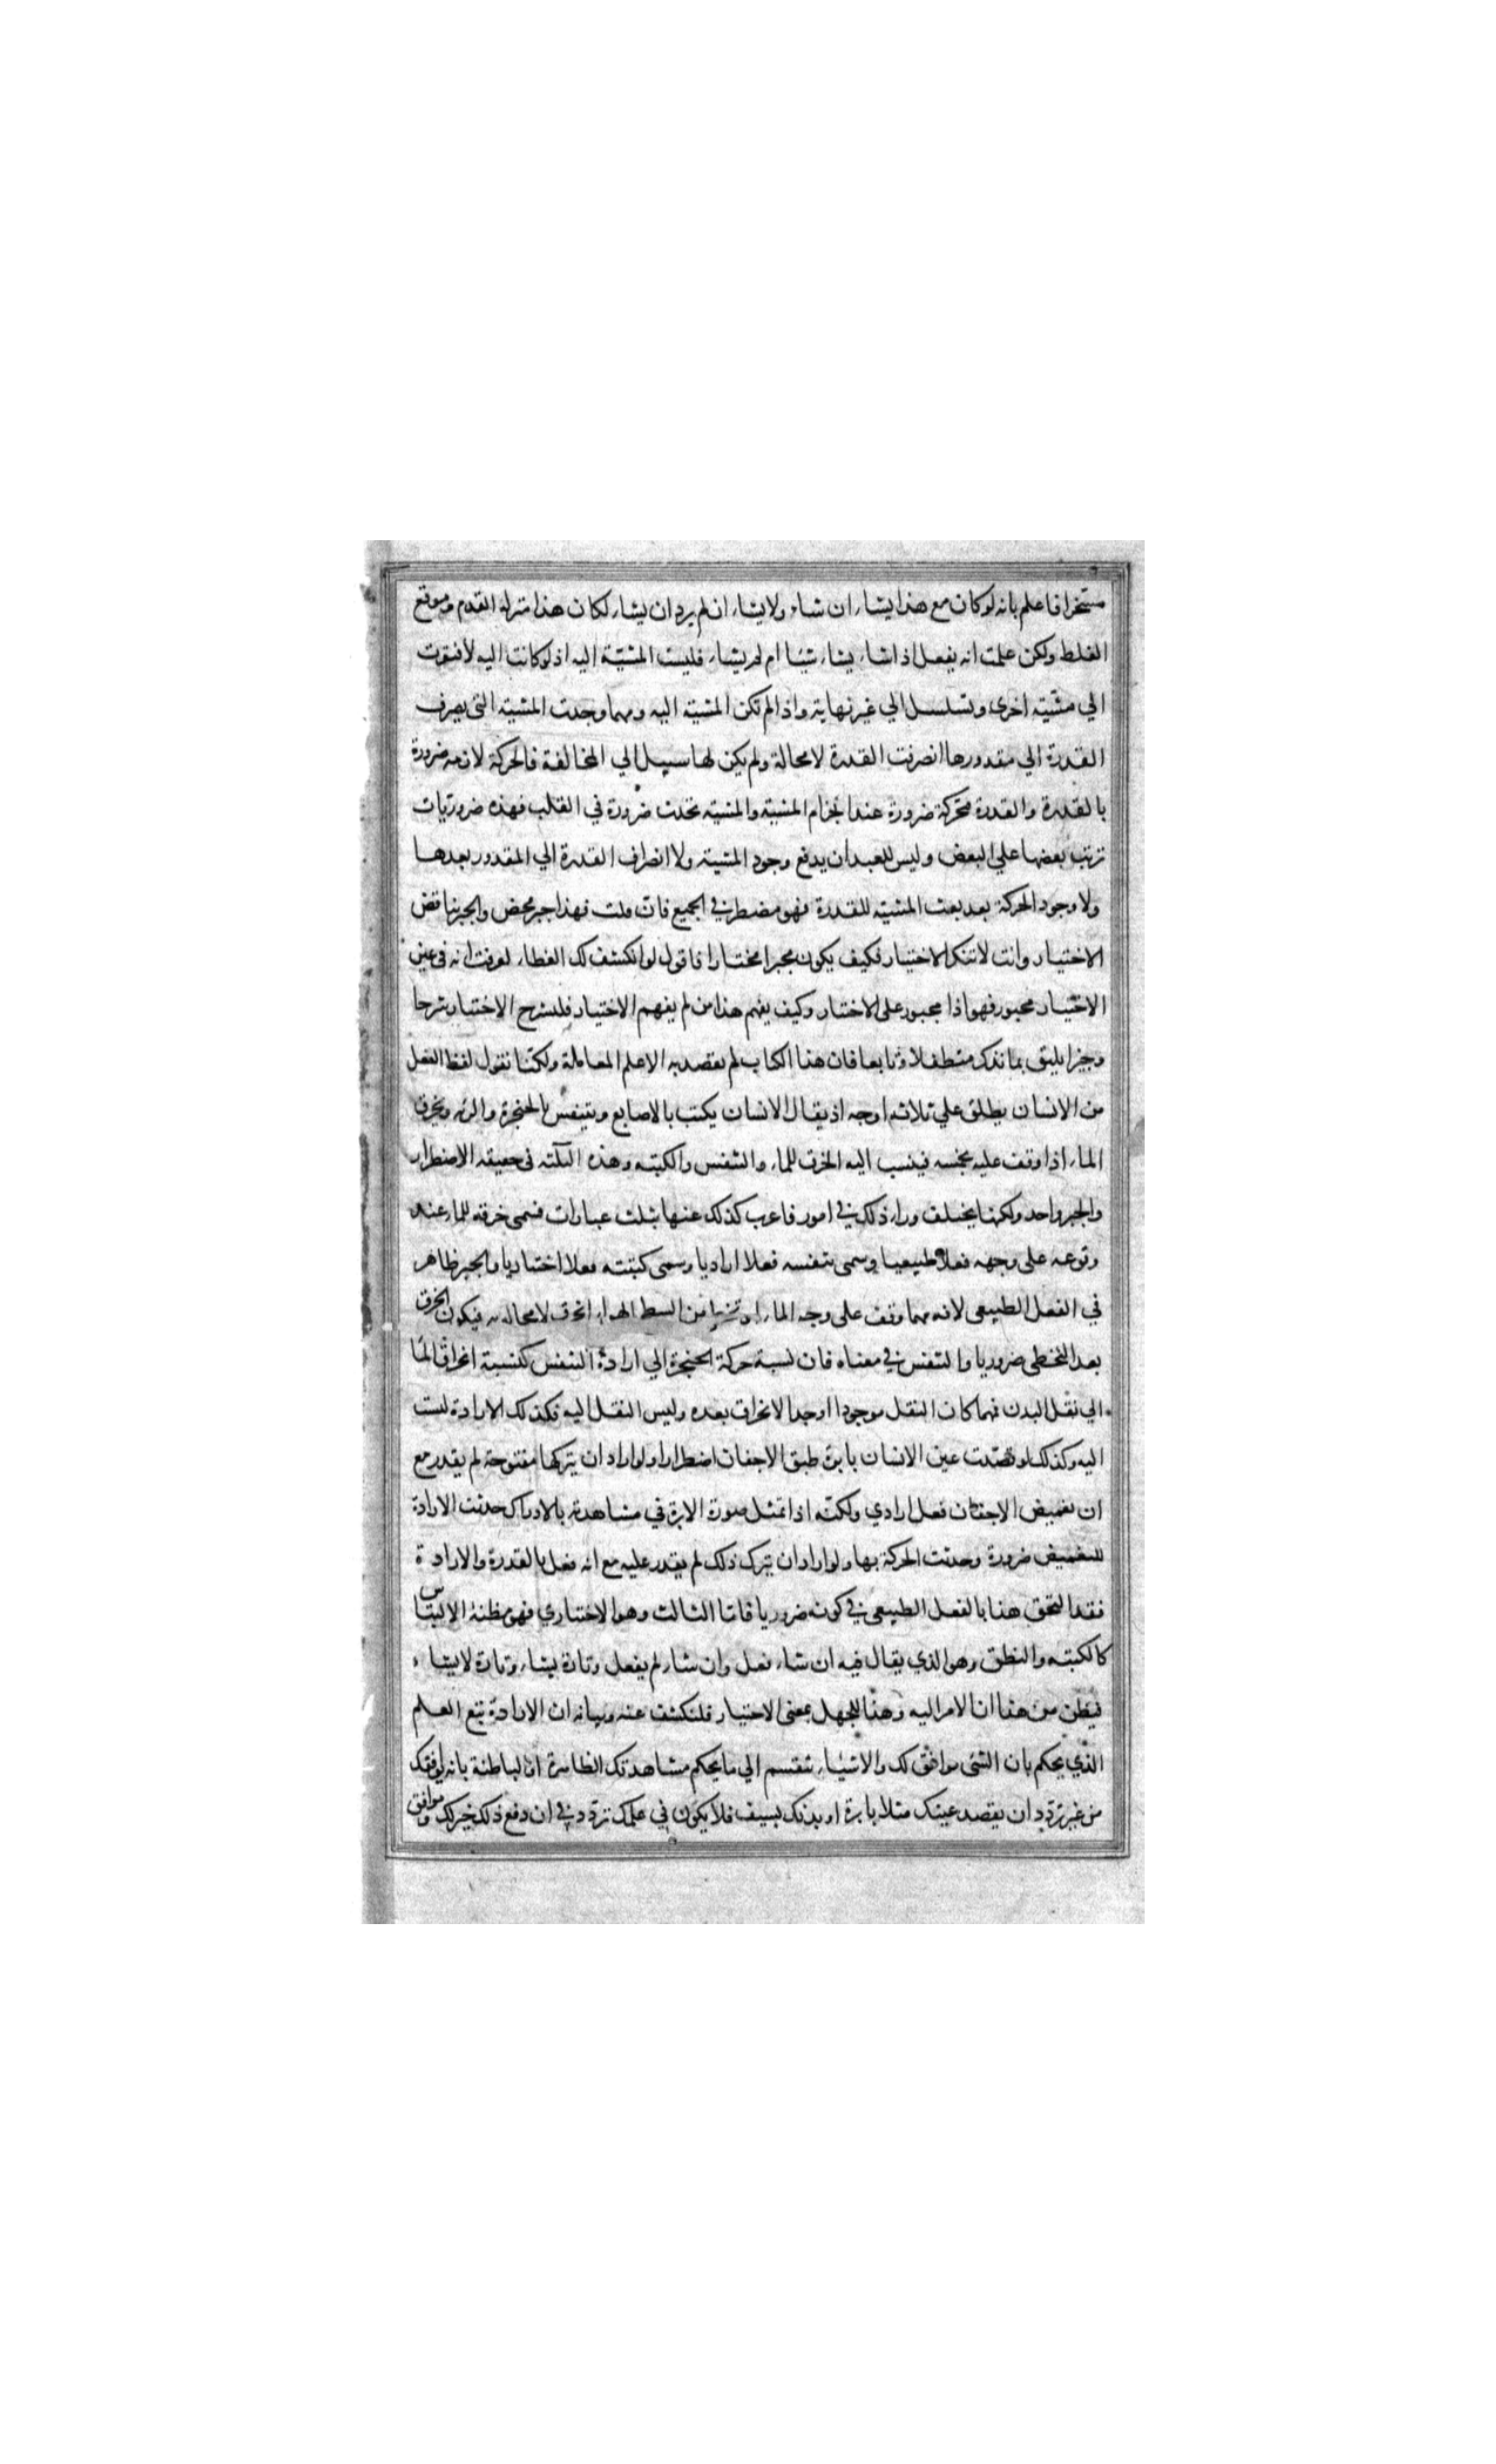 مسخرا فاعلم بانه لو كان مع هذا يشاء ان شاء ولا يشاء ان لم يرد ان يشاء لكان هذا منزلة القدم وموقع
الغلط ولكن علمت انه يفعل اذا شاء يشاء شيئا ام لم يشاء فليست المشيّة اليه اذ لو كانت اليه لافتقرت
الي مشيّته اخرى وتسلسل الي غير نهاية واذا لم تكن المشية اليه ومهما وجدت المشية التى يصرف
القدرة الي مقدورها انصرفت القدرة لا محالة ولم يكن لها سبيل الي المخالفة فالحركة لازمه ضرورة
بالقدرة والقدرة متحركة ضرورة عند انجزام المشية والمشية تحدث ضرورة في القلب فهذه ضروريات
ترتب بعضها علي البعض وليس للعبد ان يدفع وجود المشية ولا انصراف القدرة الي المقدور بعدها
ولا وجود الحركة بعد بعث المشية للقدرة فهو مضطر في الجميع فان قلت فهذا جبر محض والجبر يناقض
الاختيار وانت لا تنكر الاختيار فكيف يكون مجبرا مختارا فاقول لو انكشف لك الغطاء لعرفت انه في عين
الاختيار مجبور فهو اذا مجبور على الاختيار وكيف يفهم هذا من لم يفهم الاختيار فلنشرح الاختيار شرحا
وجيزا يليق بما نذكر متطفلا وتابعا فان هذا الكتاب لم نقصد به الا علم المعاملة ولكنّا نقول لفظ الفعل
من الانسان يطلق علي ثلاثه اوجه اذ يقال الانسان يكتب بالاصابع ويتنفس بالحنجرة والرئه ويخرق
الماء اذا وقف عليه بجسمه فينسب اليه الخرق للماء والتنفس والكتبه وهذه الثلاثه في حقيقه الاضطرار
والجبر واحد ولكنها يختلف وراء ذلك في امور فاعرب كذلك عنها بثلث عبارات فسمى خرقه للماء عند
وقوعه على وجهه فعلا طبيعيا وسمى تنفسه فعلا اراديا وسمى كتبته فعلا اختياريا والجبر ظاهر
في الفعل الطبيعي لانه مهما وقف على وجه الماء او تخطا من السطح الهواء انخرق لا محاله فيكون الخرق
بعد التخطى ضروريا والتنفس في معناه فان نسبة حركة الحنجرة الي ارادة التنفس كنسبة انخراق الماء
الي ثقل البدن فمهما كان الثقل موجودا اوجد الانخراق بعده وليس الثقل اليه فكذلك الارادة ليست
اليه وكذلك لو قصدت عين الانسان بابرة طبق الاجفان اضطرارا ولو اراد ان يتركها مفتوحة لم يقدر مع
ان تغميض الاجفان فعل ارادي ولكنّه اذا تمثل صورة الابرة في مشاهدته بالادراك حدثت الارادة
للتغميض ضرورة وحدثت الحركة بها ولو اراد ان يترك ذلك لم يقدر عليه مع انه فعل بالقدرة والارادة
فقد التحق هذا بالفعل الطبيعى في كونه ضروريا فاما الثالث وهو الاختياري فهو مظنة الالتباس
كالكتبه والنطق وهو الذي يقال فيه ان شاء فعل وان شاء لم يفعل وتارة يشاء وتارة لا يشاء
فيظن من هذا ان الامر اليه وهذا للجهل بمعنى الاختيار فلنكشف عنه وبيانه ان الارادة تتبع العلم
الذي يحكم بان الشئ موافق لك والاشياء تنقسم الي ما يحكم مشاهدتك الظاهرة او الباطنة بانه يوافقك
من غير تردد ان يقصد عينك مثلا بابرة او بدنك بسيف فلا يكون في علمك تردد في ان دفع ذلك خير لك وموافق